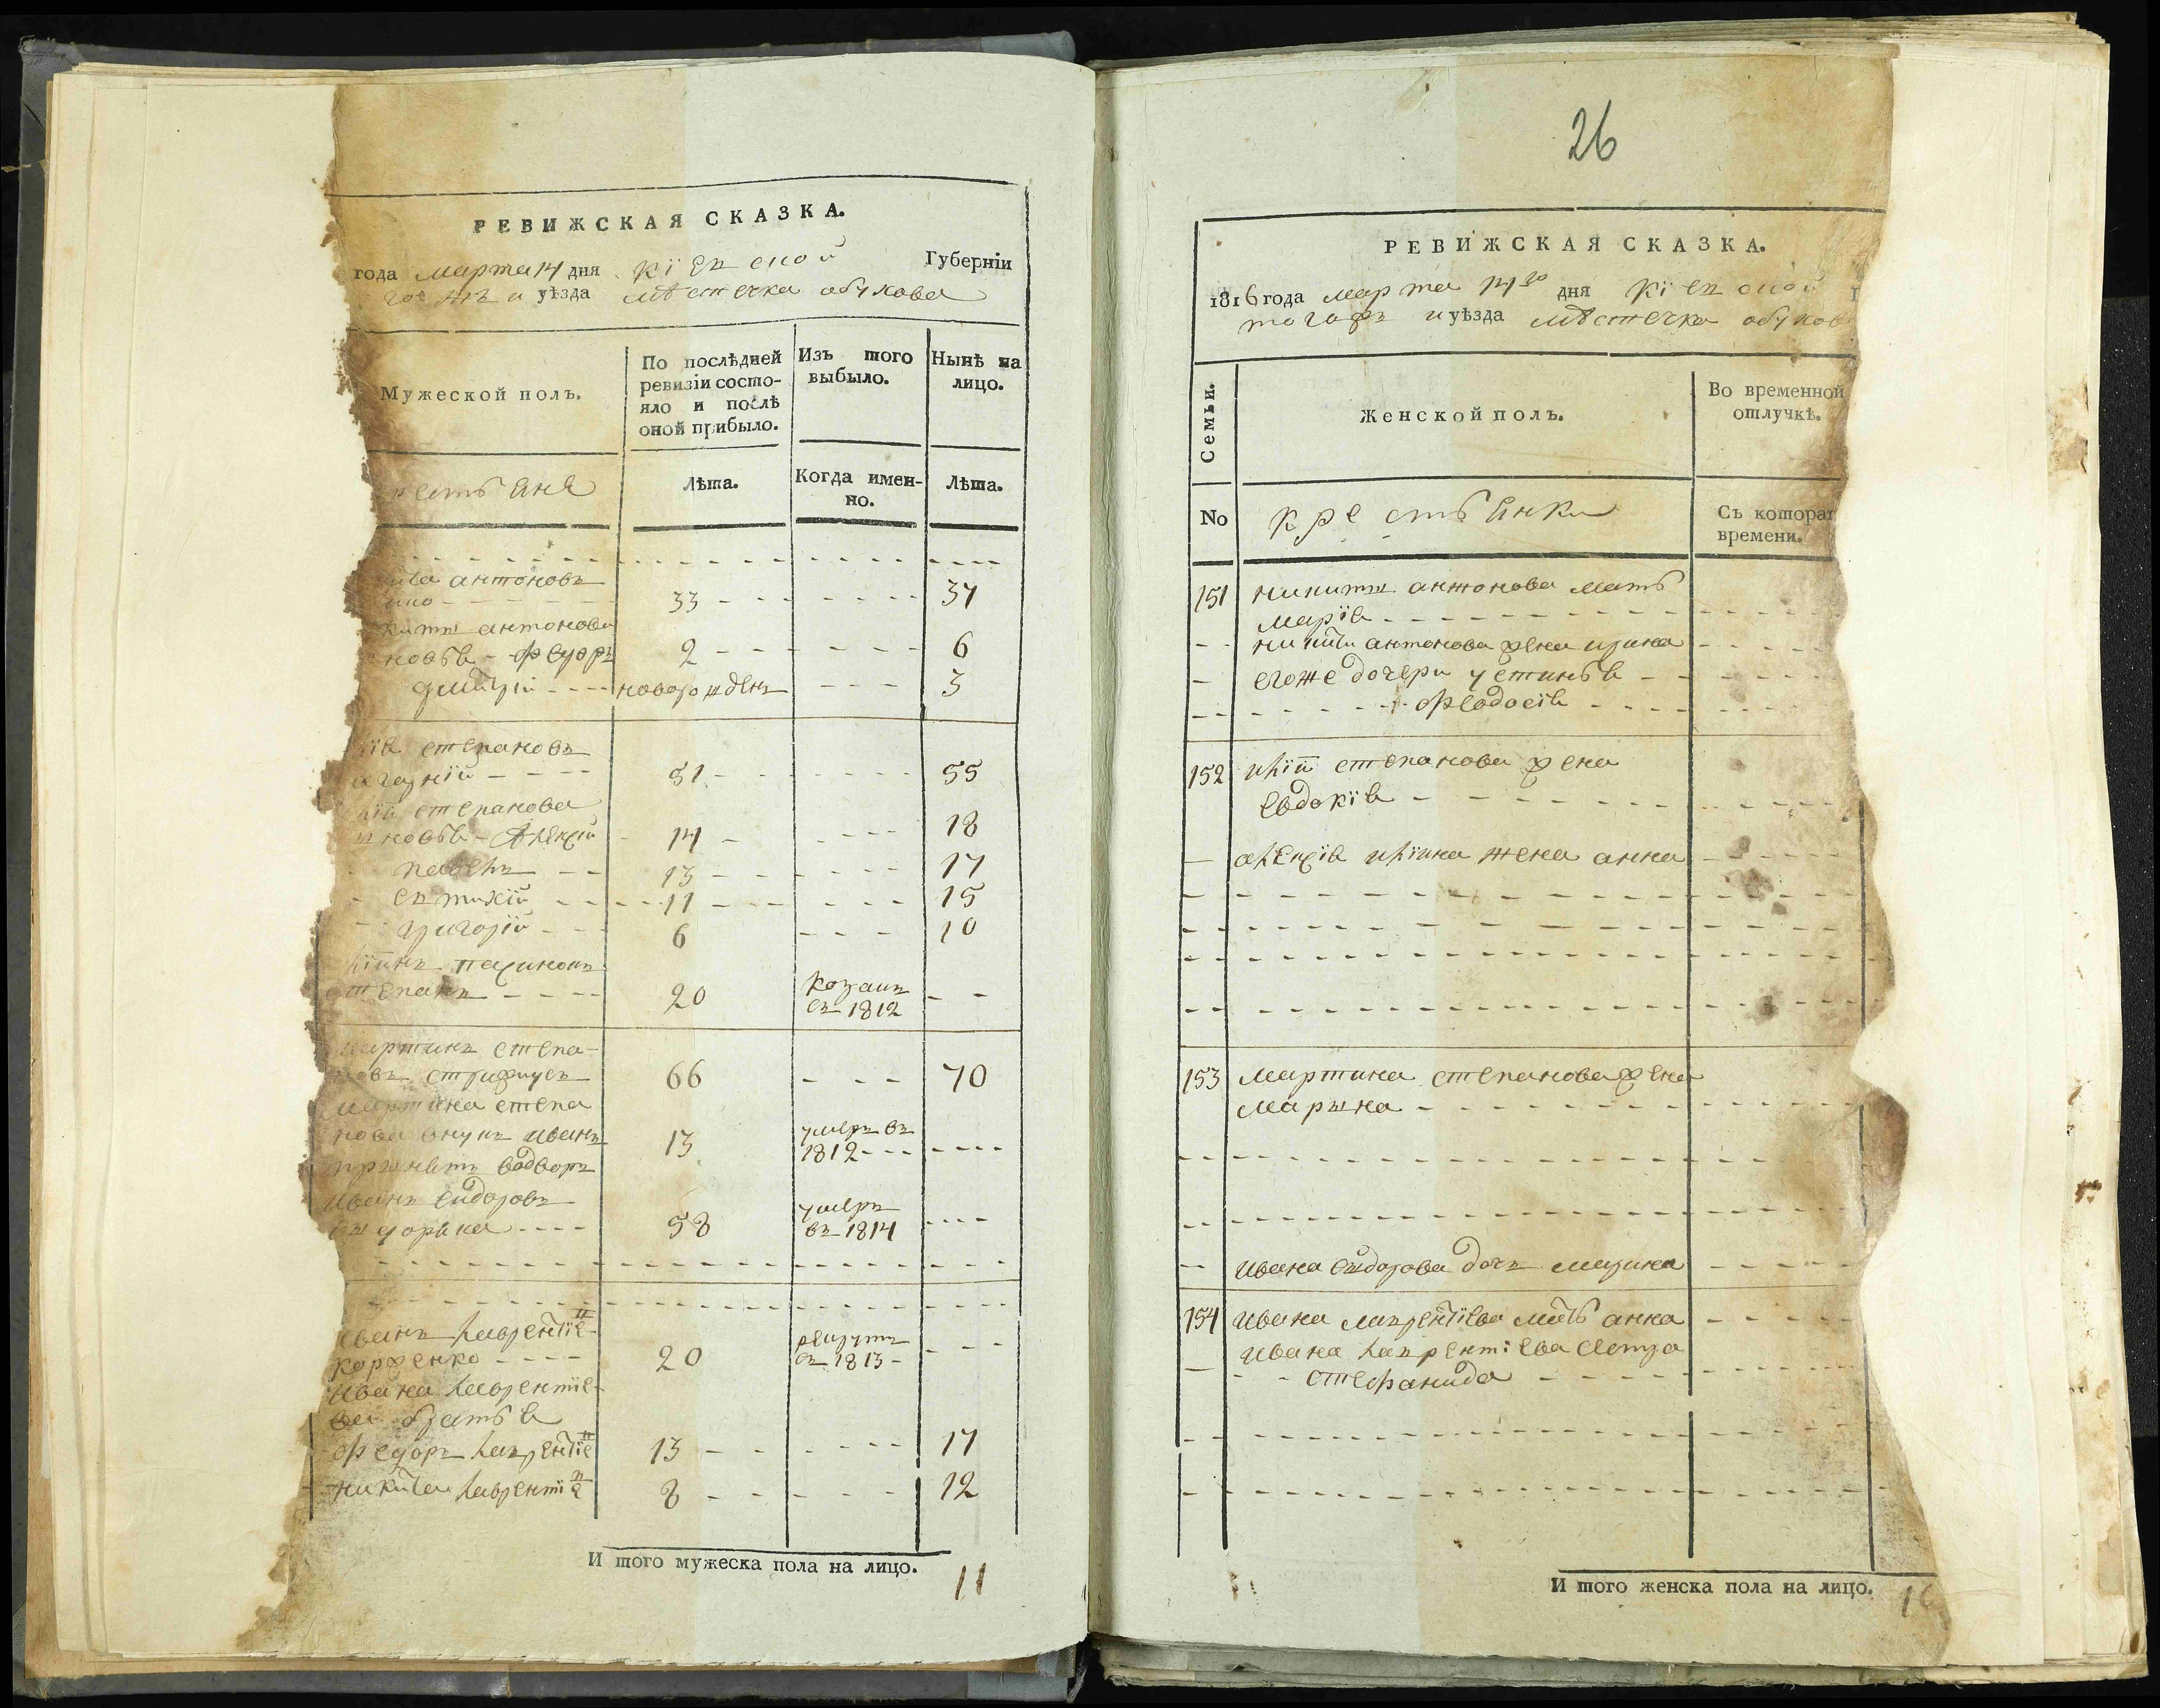 РЕВИЖСКАЯ СКАЗКА.
года марта 14 дня Кіевской Губерніи
уѣзда мѣстечка обухова
Мужеской полъ.
По послѣдней ревизіи состояло и послѣ оной прибыло.
Изъ того выбыло.
Нынѣ на лицо.
Лѣта.
Когда именно.
Лѣта.
антоновъ
33 37
антонова
феодръ 2 6
дмитрій новорожденъ 3
степановъ
51 55
степанова
Алексій 14 18
павелъ 13 17
евтихій 11 15
григорій 6 10
степанъ 20 козакъ въ 1812
мартинъ степа-
новъ 66 70
мартина степа
нова внукъ иванъ 13 умеръ въ 1812
принятъ водворъ
иванъ сидоровъ
58 умеръ въ 1814
иванъ лаврентіе
корженко 20 рекрутъ въ 1813
ивана лаврентіе-
ва братья
федоръ лаврентіе 13 17
никита лаврентіе 8 12
И того мужеска пола на лицо. 11
26
РЕВИЖСКАЯ СКАЗКА.
1816 года марта 14го дня Кіевской
тогожъ и уѣзда мѣстечка обухов
Семьи.
Женской полъ.
Во временной отлучкѣ.
No
крестьянки
Съ котораг времени.
151 никиты антонова мать
марія
никиты антонова жена ирина
егоже дочери устинья
феодосія
152 степанова жена
евдокія
алексія жена анна
153 мартина степанова жена
марына
ивана сидорова дочь марина
154 ивана лаврентіева мать анна
ивана лаврентіева сестра
стефанида
И того женска пола на лицо.